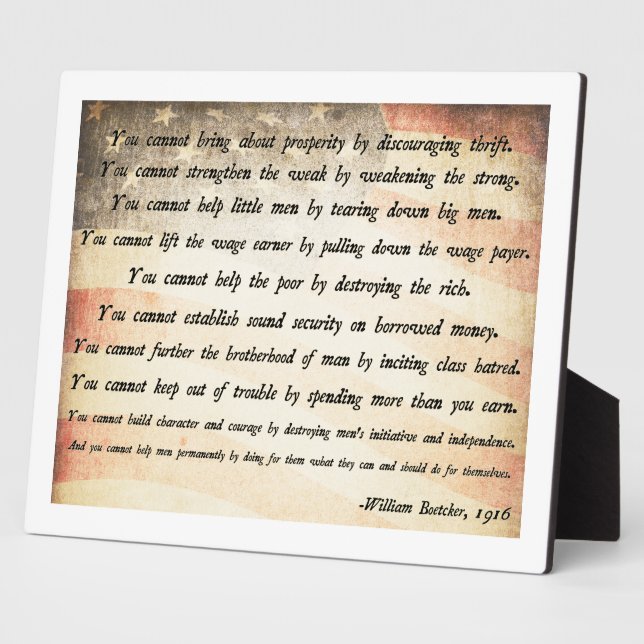 You cannot bring about prosperity by discouraging thrift.
You cannot strengthen the weak by weakening the strong.
You cannot help little men by tearing down big men.
You cannot lift the wage earner by pulling down the wage payer.
You cannot help the poor by destroying the rich.
You cannot establish sound security on borrowed money.
You cannot further the brotherhood of man by inciting class hatred.
You cannot keep out of trouble by spending more than you earn.
You cannot build character and courage by destroying men's initiative and independence.
And you cannot help men permanently by doing for them what they can and should do for themselves.
-William Boetcker, 1916